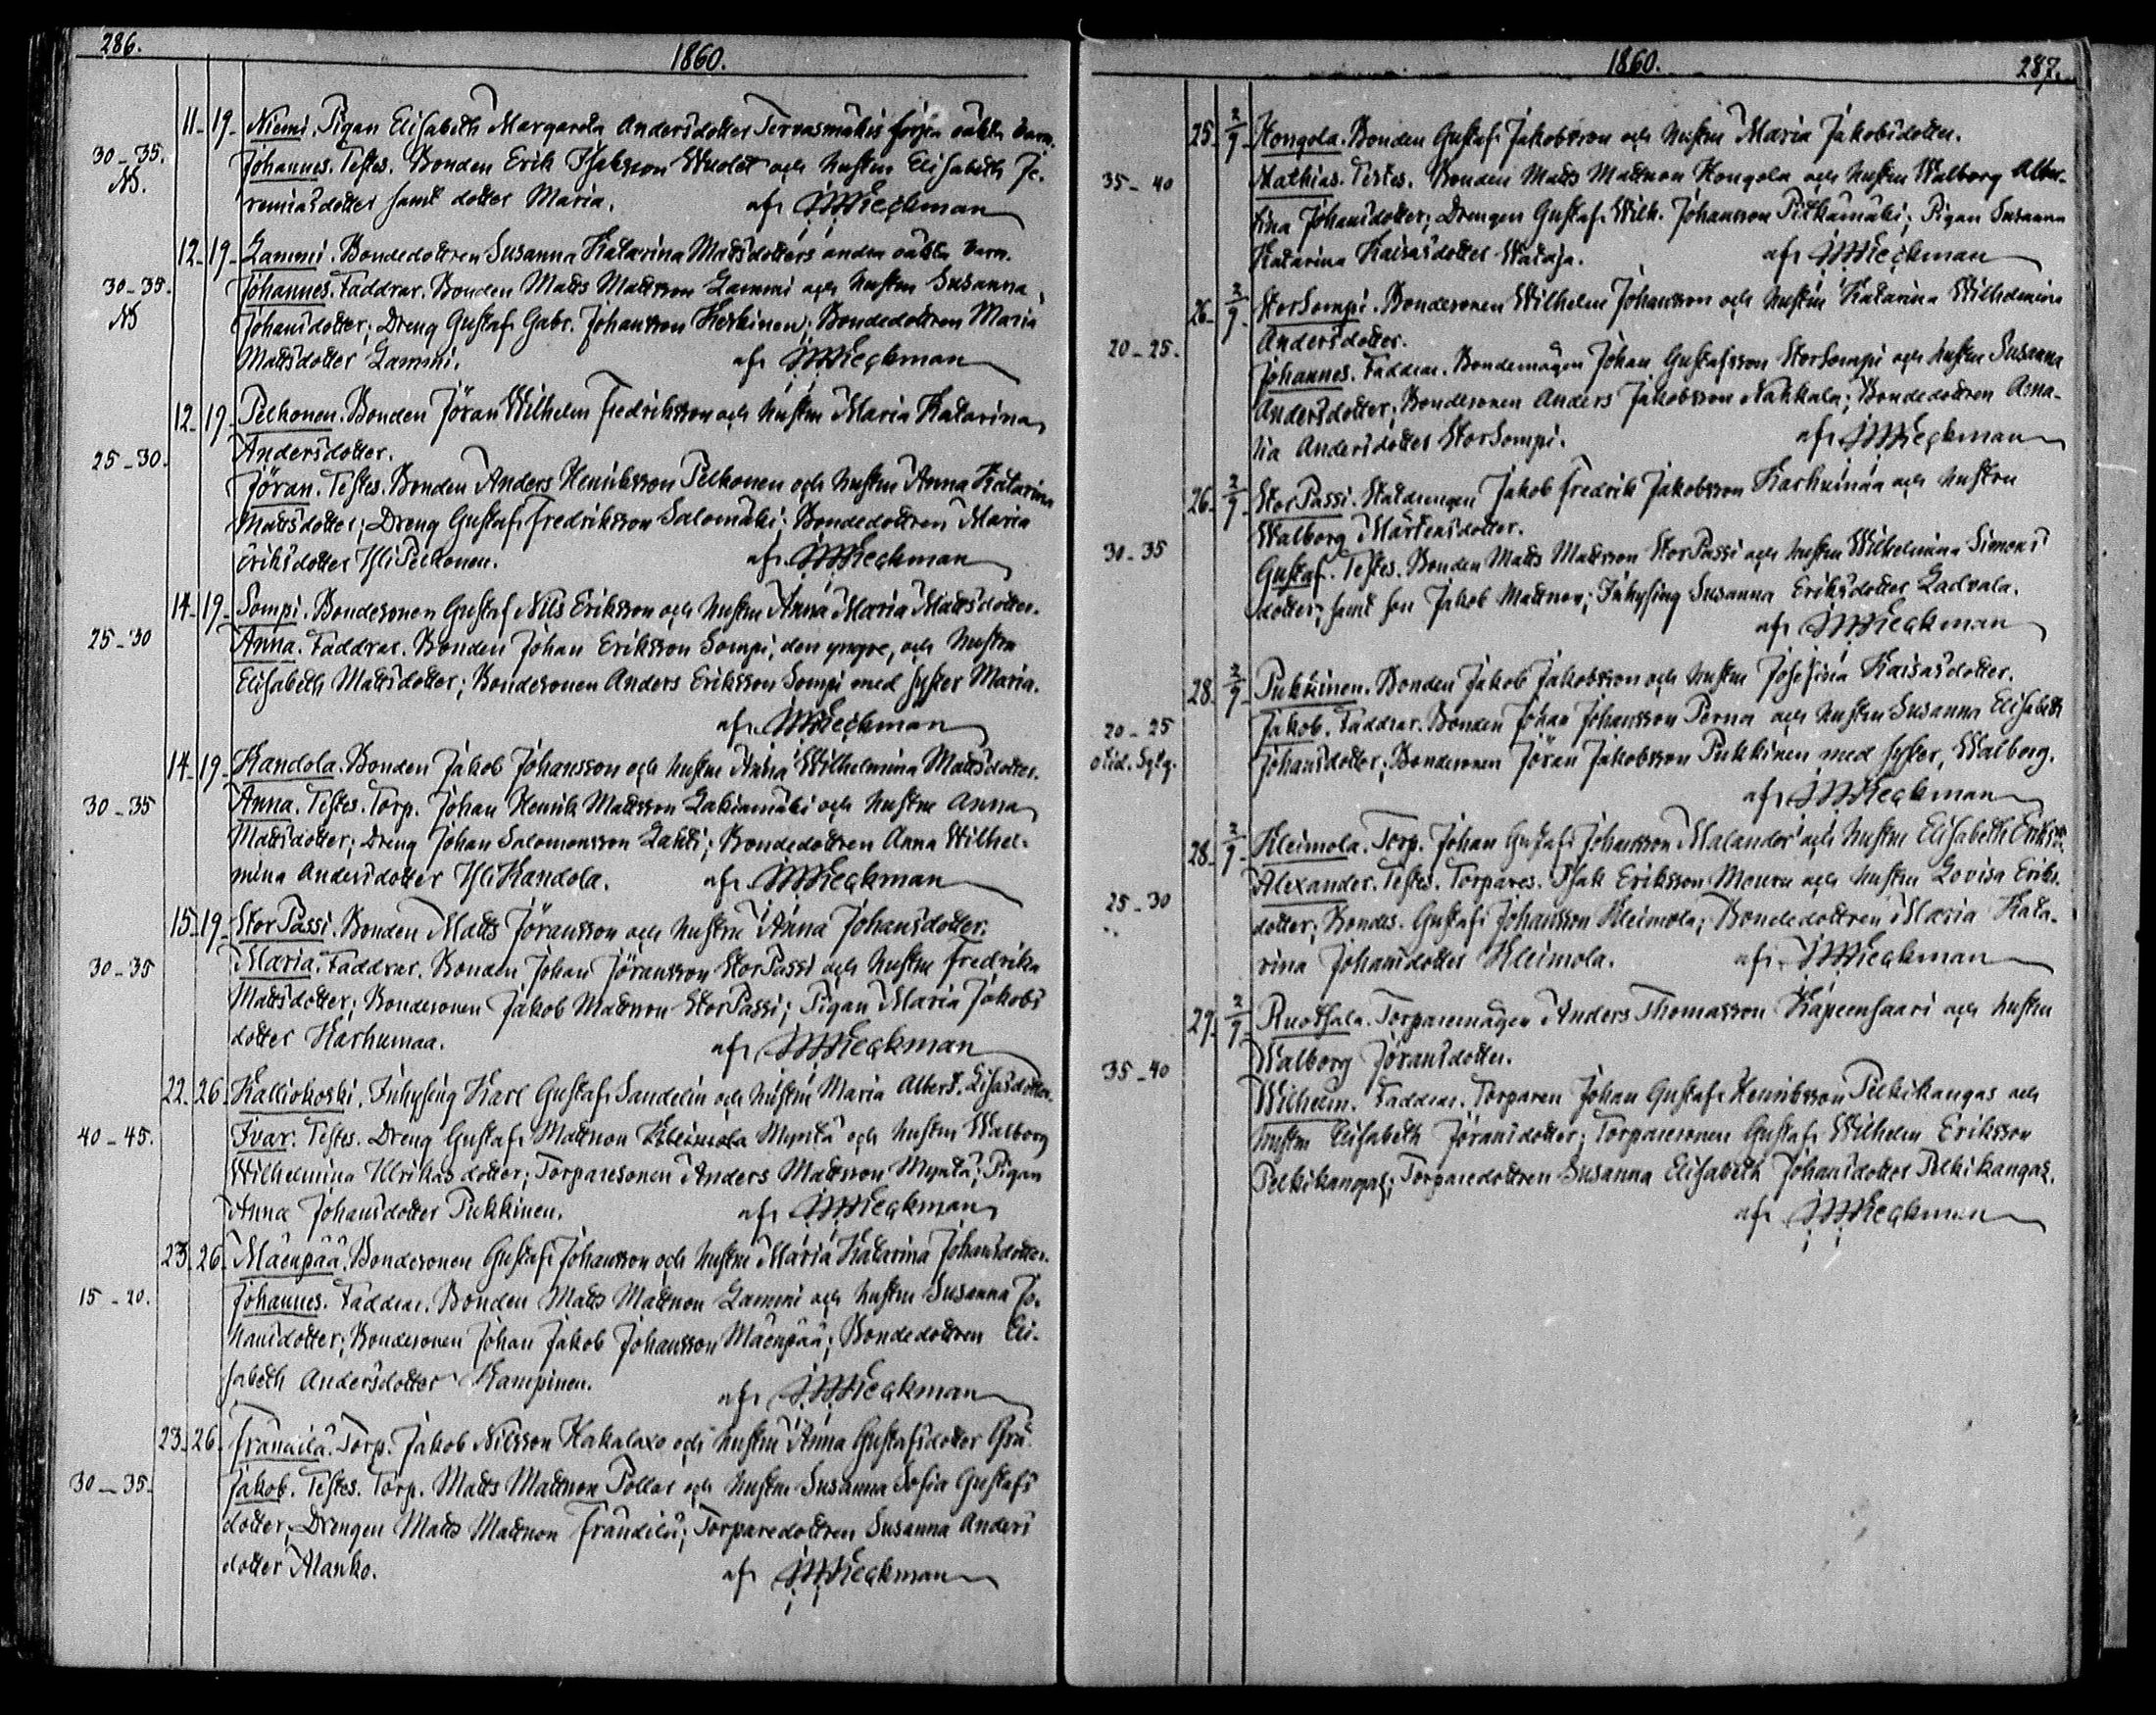 286.
1860.
11. 19. Niemi. Pigan Elisabeth Margareta Andersdotter Tervasmäkis första oäkta barn.
30-35. Johannes. Testes. Bonden Erik Isaksson and hustru Elisabeth Je-
remiasdotter samt dotter Maria. af JMHeckman
12. 19. Lammi. Bondedottren Susanna Katarina Mattsdotters andra oäkta barn.
30-35. Johannes. Faddrar. Bonden Matts Mattsson Lammi och hustru Susanna
Johansdotter; Dreng Gustaf Gabr. Johansson Keskinen; Bondedottren Maria
Mattsdotter Lammi. af JMHeckman
12. 19. Pelkonen. Bonden Jöran Wilhelm Fredriksson och hustru Maria Katarina
25-30. Andersdotter.
Jöran. Testes. Bonden Anders Henriksson Pelkonen och hustru Anna Katarina
Mattsdotter; Dreng Gustaf Fredriksson Salomäki; Bondedottren Maria
Eriksdotter Pelkonen. af JMHeckman
14. 19. Sompi. Bondesonen Gustaf Nils Eriksson och hustru Anna Maria Mattsdotter.
25-30 Anna. Faddrar. Bonden Johan Eriksson Sompi, den yngre, och hustru
Elisabeth Mattsdotter; Bondesonen Anders Eriksson Sompi med syster Maria.
af JMHeckman
14. 19. Kandola. Bonden Jakob Johansson och hustru Anna Wilhelmina Mattsdotter.
30-35 Anna. Testes. Torp. Johan Henrik Mattsson Lakiamäki och hustru Anna
Mattsdotter; Dreng Johan Salomonsson Lahti; Bondedottren Anna Wilhel-
mina Andersdotter Kandola. af JMHeckman
15. 19. StorPassi. Bonden Matts Jöransson och hustru Anna Johansdotter.
30-35 Maria. Faddrar. Bonden Johan Jöransson StorPassi och hustru Fredrika
Mattsdotter; Bondesonen Jakob Mattsson StorPassi; Pigan Maria Jakobs
dotter Karhumaa. af JMHeckman
22. 26. Kalliokoski. Inhysing Karl Gustaf Sandelin och hustru Maria Albert. Lisasdotter.
40-45. Ivar. Testes. Dreng Gustaf Mattsson Mynta och hustru Walborg
Wilhelmina Ulrikasdotter; Torparesonen Anders Mattsson Mynta; Pigan
Anna Johansdotter Pukkinen. af JMHeckman
23. 26. Mäenpää. Bondesonen Gustaf Johansson och hustru Maria Katarina Johansdotter.
15-20. Johannes. Faddrar. Bonden Matts Mattsson Lammi och hustru Susanna Jo-
hansdotter; Bondesonen Johan Jakob Johansson Mäenpää; Bondedottren Eli-
sabeth Andersdotter Kampinen. af JMHeckman
23. 26. Frändilä. Torp. Jakob Nilsson Hakalaxo och hustru Anna Gustafsdotter
30-35. Jakob. Testes. Torp. Matts Mattsson Pollar och hustru Susanna Sofia Gustafs
dotter; Drengen Matts Mattsson Frändilä; Torparedottren Susanna Anders
dotter Alanko. af JMHeckman
1860.
287.
25. 2/9. Hongola. Bonden Gustaf Jakobsson och hustru Maria Jakobsdotter.
35-40 Mathias. Testes. Bonden Matts Mattsson Hongola och hustru Walborg Alber-
tina Johansdotter; Drengen Gustaf Wilh. Johansson Pitkämäki; Pigan Susanna
Katarina Kaisasdotter Wataja. af JMHeckman
26. 2/9. StorSompi. Bondesonen Wilhelm Johansson och hustru Katarina Wilhelmina
20-25. Andersdotter.
Johannes. Faddrar. Bondemågen Johan Gustafsson StorSompi och hustru Susanna
Andersdotter; Bondesonen Anders Jakobsson Nahkala; Bondedottren Ama-
lia Andersdotter StorSompi. af JMHeckman
26. 2/9. StorPassi. Statdrengen Jakob Fredrik Jakobsson Karhumaa och hustru
Walborg Mårtensdotter.
30-35 Gustaf. Testes. Bonden Matts Mattsson StorPassi och hustru Wilhelmina Simons
dotter; samt son Jakob Mattsson; Inhysing Susanna Eriksdotter Ladvala.
af JMHeckman
28. 2/9. Pukkinen. Bonden Jakob Jakobsson och hustru Josefina Kaisasdotter.
20-25 Jakob. Faddrar. Bonden Johan Johansson Perna och hustru Susanna Elisabeth
Johansdotter; Bondesonen Jöran Jakobsson Pukkinen med syster, Walborg.
af JMHeckman
28. 2/9. Kleimola. Torp. Johan Gustaf Johansson Malander och hustru Elisabeth Eriksd:r
25-30 Alexander. Testes. Torpares. Isak Eriksson och hustru Lovisa Eriks-
dotter; Bondes. Gustaf Johansson Kleimola; Bondedottren Maria Kata-
rina Johansdotter Kleimola. af JMHeckman
29. 2/9. Ruotsala. Torparemågen Anders Thomasson Käpeensaari och hustru
35-40 Walborg Jöransdotter.
Wilhelm. Faddrar. Torparen Johan Gustaf Henriksson Pelkikangas och
hustru Elisabeth Jöransdotter; Torparesonen Gustaf Wilhelm Eriksson
Pelkikangas; Torparedottren Susanna Elisabeth Johansdotter Pelkikangas.
af JMHeckman